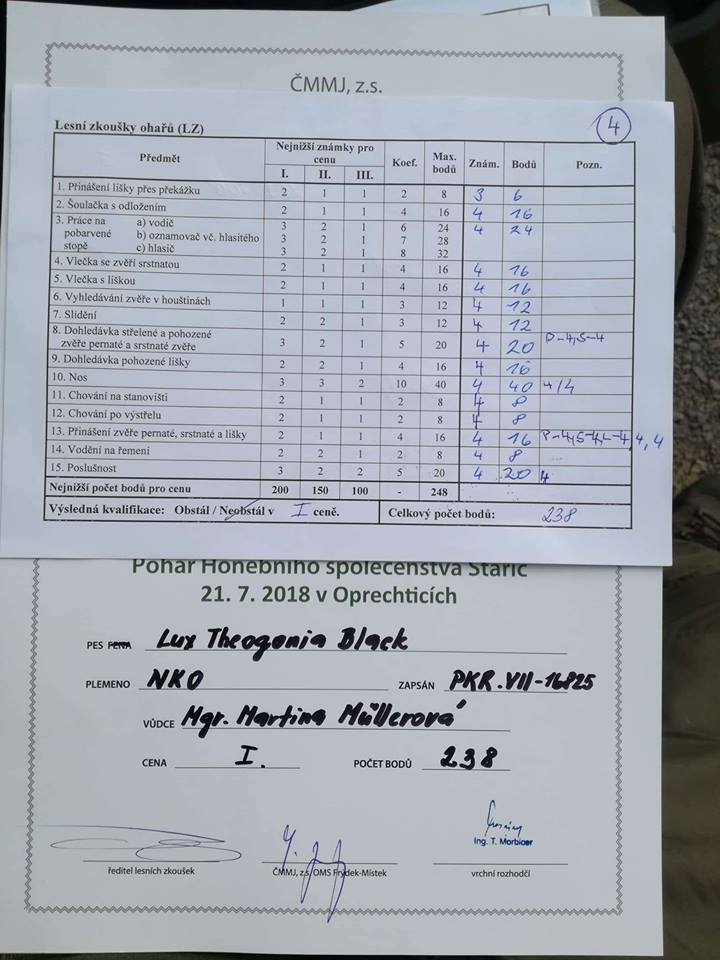 ČMMJ, z.s.
4
Lesní zkoušky ohařů (LZ)
Předmět Nejnižší známky pro cenu Koef. Max. bodů Znám. Bodů Pozn.
I. II. III.
1. Přinášení lišky přes překážku 2 1 1 2 8 3 6
2. Šoulačka s odložením 2 1 1 4 16 4 16
3. Práce na pobarvené stopě a) vodič 3 2 1 6 24 4 24
b) oznamovač vč. hlasitého 3 2 1 7 28
c) hlasič 3 2 1 8 32
4. Vlečka se zvěří srstnatou 2 1 1 4 16 4 16
5. Vlečka s liškou 2 1 1 4 16 4 16
6. Vyhledávání zvěře v houštinách 1 1 1 3 12 4 12
7. Slídění 2 2 1 3 12 4 12
8. Dohledávka střelené a pohozené zvěře pernaté a srstnaté zvěře 3 2 1 5 20 4 20 P-4,S-4
9. Dohledávka pohozené lišky 2 2 1 4 16 4 16
10. Nos 3 3 2 10 40 4 40 4/4
11. Chování na stanovišti 2 1 1 2 8 4 8
12. Chování po výstřelu 2 1 1 2 8 4 8
13. Přinášení zvěře pernaté, srstnaté a lišky 2 1 1 4 16 4 16 P-4,S-4,L-4,4,4
14. Vodění na řemeni 2 2 1 2 8 4 8
15. Poslušnost 3 2 2 5 20 4 20 4
Nejnižší počet bodů pro cenu 200 150 100 - 248
Výsledná kvalifikace: Obstál / Neobstál v I ceně. Celkový počet bodů: 238
Pohár Honebního společenstva Staříč
21. 7. 2018 v Oprechticích
PES FENA Lux Theogonia Black
PLEMENO NKO ZAPSÁN PKR.VII-16825
VŮDCE Mgr. Martina Müllerová
CENA I. POČET BODŮ 238
Ing. T. Morbicer
ředitel lesních zkoušek ČMMJ, z.s. OMS Frýdek-Místek vrchní rozhodčí